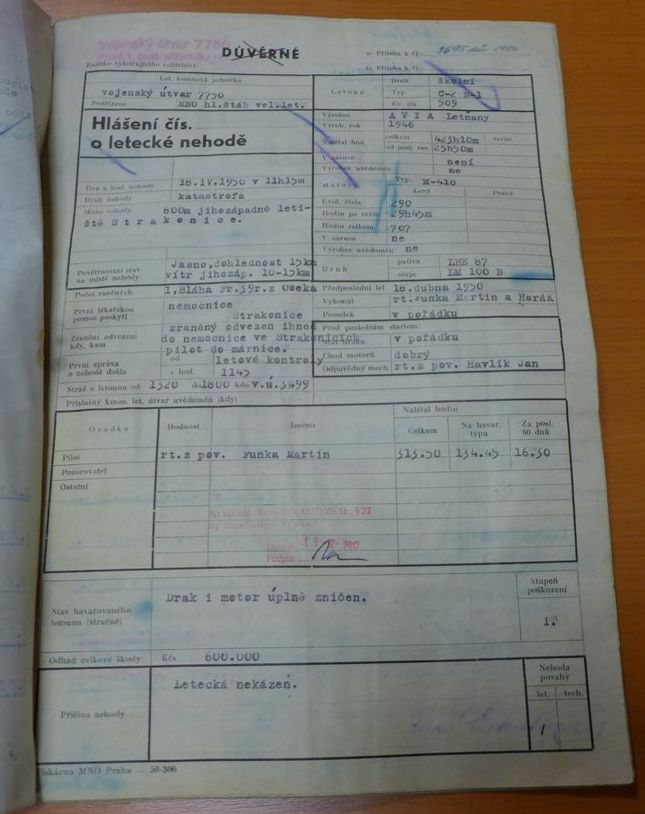 Vojenský útvar 7750
DŮVĚRNÉ
Příloha k čj
Příloha k čj
Let. kmenová jednotka
vojenský útvar 7750
Podřízen MNO hl.štáb vel.let.
Letoun
Druh školní
Typ C-2 B-1
Ev. čís. 509
Hlášení čís.
o letecké nehodě
Výrobce AVIA Letňany
Výrob. rok 1946
Nalétal hod. celkem 423h10m revisi
od posl. rev. 25h50m
V záruce není
Výrobce uvědoměn ne
Den a hod. nehody 18.IV.1950 v 11h15m
Druh nehody katastrofa
Místo nehody 800m jihozápadně leti-
ště Strakonice.
Motory Typ: M-410
Levý Pravý
Evid. číslo 290
Hodin po revisi 29h45m
Hodin celkem 707
V záruce ne
Výrobce uvědoměn ne
Povětrnostní stav
na místě nehody
Jasno, dohlednost 15km
vítr jihozáp. 10-15km
Druh
paliva LBE 87
oleje LM 100 B
Počet raněných 1, Bláha Fr.39r.z Oseka
První lékařskou
pomoc poskytl
nemocnice
Strakonice
Zranění odvezeni
kdy, kam
zraněný odvezen ihned
do nemocnice ve Strakonicích
pilot do márnice.
První zpráva
o nehodě došla
od letové kontroly
v hod. 1145
Stráž u letounu od 1320 do 1800 kdo v.ú.3499
Předposlední let 18.dubna 1950
Vykonal rt.Funka Martin a Horák
Posudek v pořádku
Před posledním startem:
v pořádku
Chod motorů dobrý
Odpovědný mech rt.z pov. Havlík Jan
Příslušný kmen. let. útvar uvědoměn (kdy)
Osádka
Hodnost
Jméno
Nalétal hodin
Celkem
Na havar.
typu
Za posl.
60 dnů
Pilot rt.z pov. Funka Martin 313.50 134.45 16.30
Pozorovatel
Ostatní
Datum:
Podpis:
Stav havarovaného
letounu (stručně)
Drak i motor úplně zničen.
Stupeň
poškození
1.
Odhad celkové škody Kčs 600.000
Příčina nehody
Letecká nekázeň.
Nehoda
povahy
let. tech.
1
Tiskárna MNO Praha — 50-306